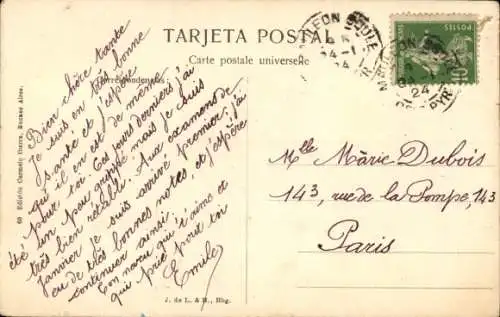 TARJETA POSTAL
Carte postale universelle
Correspondencia
Bien chère tante
Je suis en très bonne
santé et j'espère
qu'il en est de même
pour toi. Ces jours derniers j'ai
été un peu grippé mais je suis
très bien rétabli. Aux examens de
janvier je suis arrivé premier; j'ai
eu de très bonnes notes, et j'espère
continuer ainsi.
Ton neveu qui t'aime et
qui prie pour toi
Emile
Mlle Marie Dubois
143, rue de la Pompe, 143
Paris
69 Edición Carmelo Ibarra, Buenos Aires.
J. de L. & H., Hbg.
POSTES
10
24